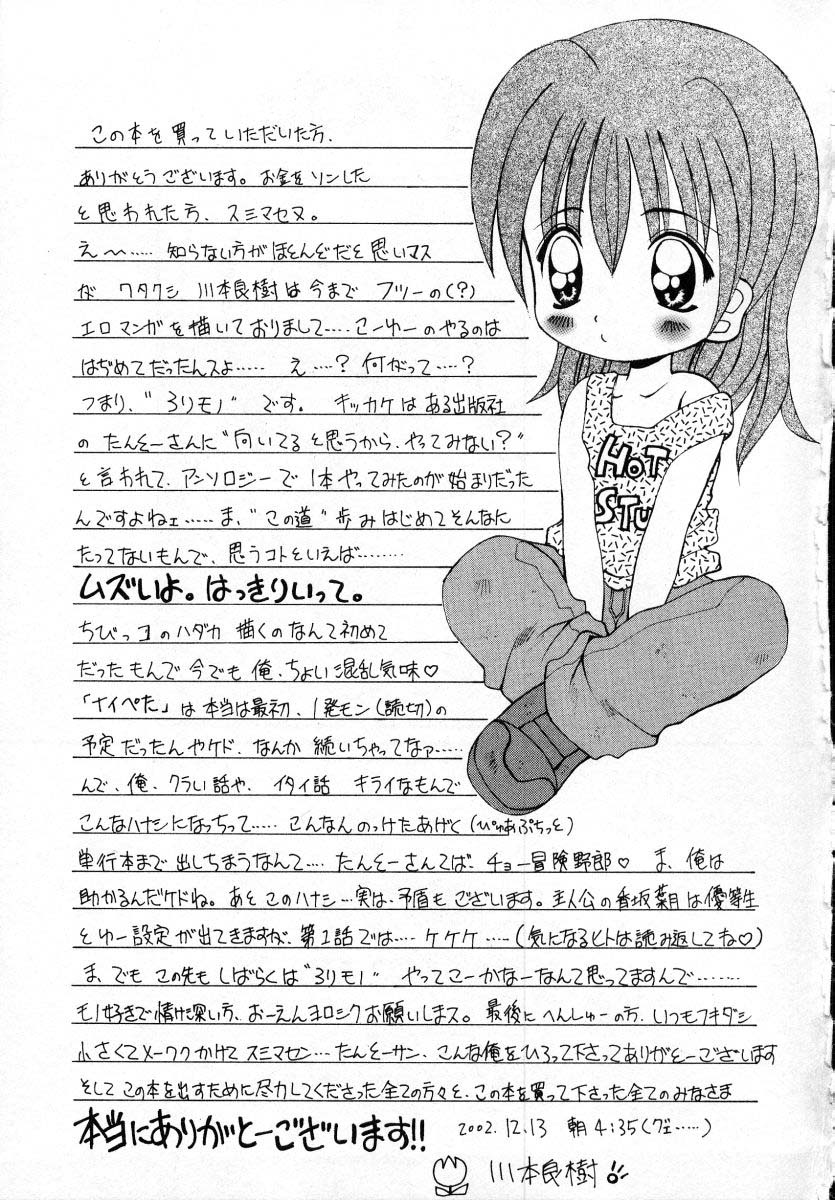 この本を買っていただいた方、
ありがとうございます。お金をソンした
と思われた方、スミマセヌ。
え〜…… 知らない方がほとんどだと思いマス
が ワタクシ 川本良樹は今まで フツーの(?)
エロマンガを描いておりまして…… こーゆーのやるのは
はぢめてだったんスよ…… え…? 何がって…?
つまり、"ろりモノ" です。 キッカケはある出版社
の たんとーさんに"向いてると思うから、やってみない?"
と言われて、アンソロジーで 1本やってみたのが始まりだった
んですよねェ…… ま、"この道"歩みはじめてそんなに
たってないもんで、思うコトといえば………
ムズいよ。はっきりいって。
ちびっコのハダカ 描くのなんて初めて
だったもんで今でも俺、ちょい混乱気味♡
「ナイペた」は本当は最初、1発モン(読切)の
予定だったんやケド、なんか 続いちゃってなァ……
んで、俺、クラい話や、イタイ話 キライなもんで
こんなハナシになっちって…… こんなんのっけたあげく(ぴゅあぷちっと)
単行本まで出しちまうなんて… たんとーさんてば、チョー冒険野郎♡ ま、俺は
助かるんだケドね。あと このハナシ…実は、矛盾もございます。主人公の香坂葉月は優等生
とゆー設定が出てきますが、第1話では…… ケケケ……(気になるヒトは読み返してね♡)
ま、でも この先もしばらくは"ろりモノ" やってこーかなーなんて思ってますんで………
モノ好きで情け深い方、おーえんヨロシクお願いしまス。最後にへんしゅーの方、いつもフキダシ
小さくてメーワクかけてスミマセン…たんとーサン、こんな俺をひろって下さってありがとーございます
そして この本を出すために尽力してくださった全ての方々と、この本を買って下さった全てのみなさま
本当にありがとーございます!!
2002.12.13 朝4:35(グエ……)
川本良樹
HOT
STU